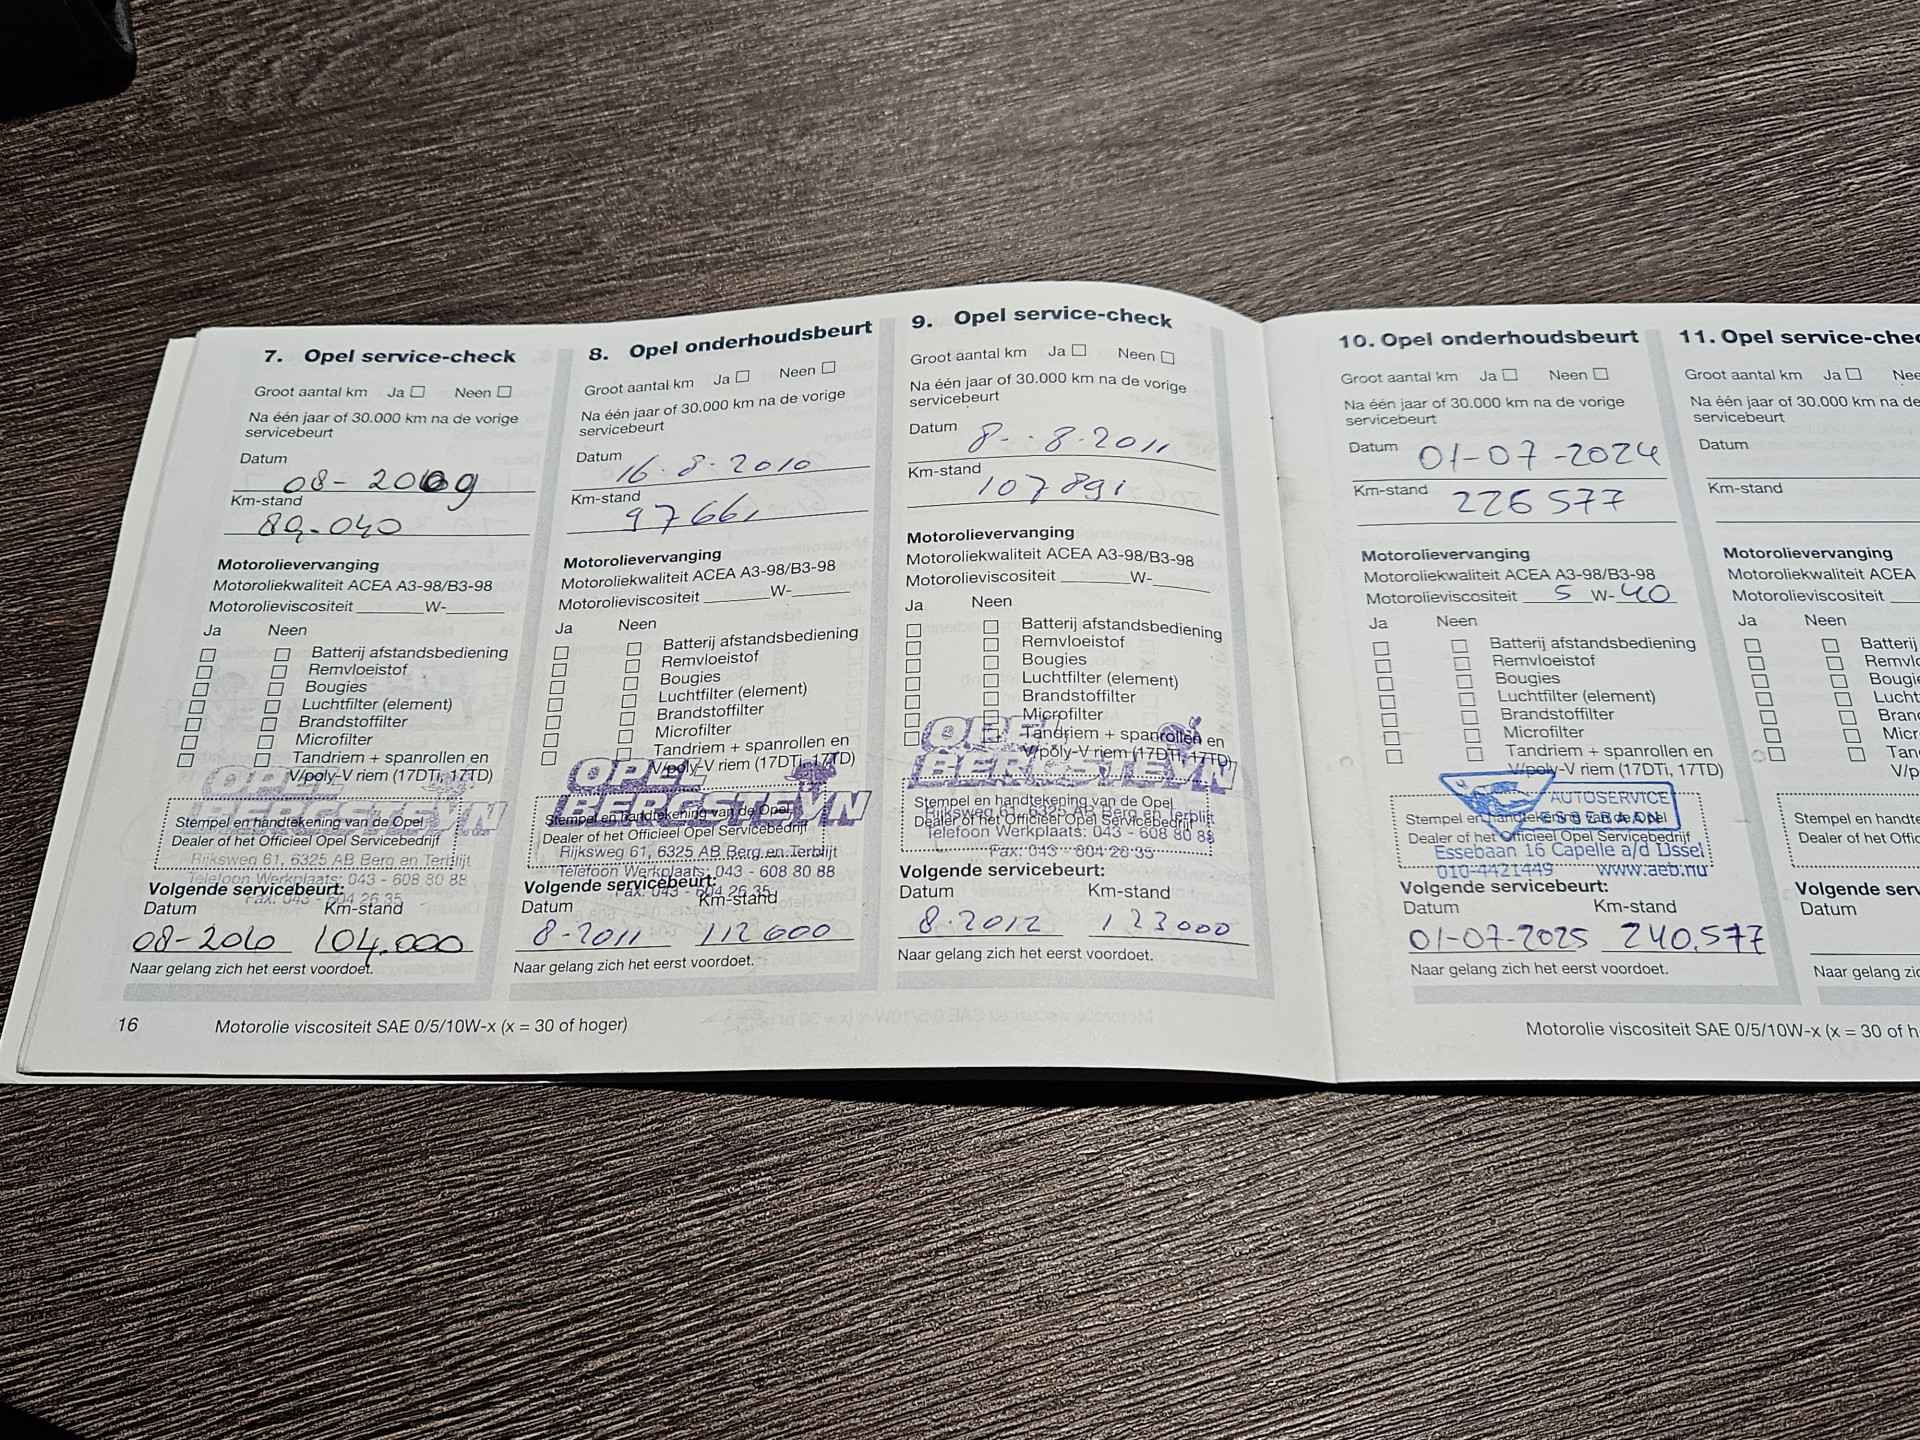 7. Opel service-check
Groot aantal km Ja Neen
Na één jaar of 30.000 km na de vorige
servicebeurt
Datum
08-2009
Km-stand
89.040
Motorolievervanging
Motoroliekwaliteit ACEA A3-98/B3-98
Motorolieviscositeit ______W-______
Ja Neen
Batterij afstandsbediening
Remvloeistof
Bougies
Luchtfilter (element)
Brandstoffilter
Microfilter
Tandriem + spanrollen en
V/poly-V riem (17DTi, 17TD)
OPEL
BERGSTEYN
Stempel en handtekening van de Opel
Dealer of het Officieel Opel Servicebedrijf
Rijksweg 61, 6325 AB Berg en Terblijt
Telefoon Werkplaats: 043 - 608 80 88
Fax: 043 - 604 26 35
Volgende servicebeurt:
Datum Km-stand
08-2010 104.000
Naar gelang zich het eerst voordoet.
16 Motorolie viscositeit SAE 0/5/10W-x (x = 30 of hoger)
8. Opel onderhoudsbeurt
Groot aantal km Ja Neen
Na één jaar of 30.000 km na de vorige
servicebeurt
Datum
16.8.2010
Km-stand
97661
Motorolievervanging
Motoroliekwaliteit ACEA A3-98/B3-98
Motorolieviscositeit ______W-______
Ja Neen
Batterij afstandsbediening
Remvloeistof
Bougies
Luchtfilter (element)
Brandstoffilter
Microfilter
Tandriem + spanrollen en
V/poly-V riem (17DTi, 17TD)
OPEL
BERGSTEYN
Stempel en handtekening van de Opel
Dealer of het Officieel Opel Servicebedrijf
Rijksweg 61, 6325 AB Berg en Terblijt
Telefoon Werkplaats: 043 - 608 80 88
Fax: 043 - 604 26 35
Volgende servicebeurt:
Datum Km-stand
8-2011 112000
Naar gelang zich het eerst voordoet.
9. Opel service-check
Groot aantal km Ja Neen
Na één jaar of 30.000 km na de vorige
servicebeurt
Datum
8-.8.2011
Km-stand
107891
Motorolievervanging
Motoroliekwaliteit ACEA A3-98/B3-98
Motorolieviscositeit ______W-______
Ja Neen
Batterij afstandsbediening
Remvloeistof
Bougies
Luchtfilter (element)
Brandstoffilter
Microfilter
Tandriem + spanrollen en
V/poly-V riem (17DTi, 17TD)
OPEL
BERGSTEYN
Stempel en handtekening van de Opel
Dealer of het Officieel Opel Servicebedrijf
Rijksweg 61, 6325 AB Berg en Terblijt
Telefoon Werkplaats: 043 - 608 80 88
Fax: 043 - 604 26 35
Volgende servicebeurt:
Datum Km-stand
8.2012 123000
Naar gelang zich het eerst voordoet.
10. Opel onderhoudsbeurt
Groot aantal km Ja Neen
Na één jaar of 30.000 km na de vorige
servicebeurt
Datum 01-07-2024
Km-stand 226577
Motorolievervanging
Motoroliekwaliteit ACEA A3-98/B3-98
Motorolieviscositeit 5 W-40
Ja Neen
Batterij afstandsbediening
Remvloeistof
Bougies
Luchtfilter (element)
Brandstoffilter
Microfilter
Tandriem + spanrollen en
V/poly-V riem (17DTi, 17TD)
AUTOSERVICE
ESSEBAAN
Stempel en handtekening van de Opel
Dealer of het Officieel Opel Servicebedrijf
Essebaan 16 Capelle a/d IJssel
010-4421449 www.aeb.nu
Volgende servicebeurt:
Datum Km-stand
01-07-2025 240.577
Naar gelang zich het eerst voordoet.
Motorolie viscositeit SAE 0/5/10W-x (x = 30 of h
11. Opel service-chec
Groot aantal km Ja Nee
Na één jaar of 30.000 km na de
servicebeurt
Datum
Km-stand
Motorolievervanging
Motoroliekwaliteit ACEA
Motorolieviscositeit
Ja Neen
Batterij
Remvlo
Bougie
Lucht
Bran
Micr
Tan
V/p
Stempel en handte
Dealer of het Offici
Volgende serv
Datum
Naar gelang zic